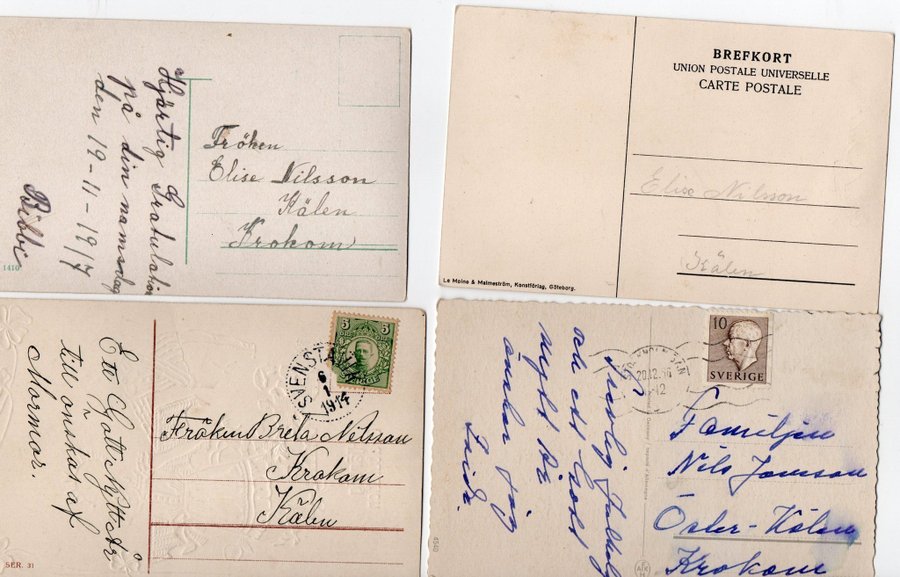 Hjärtlig Gratulation
på din namnsdag
den 19-11-1917
Bibbi
1410
Fröken
Elise Nilsson
Kälen
Krokom
BREFKORT
UNION POSTALE UNIVERSELLE
CARTE POSTALE
Elise Nilsson
Kälen
Le Moine & Malmeström, Konstförlag, Göteborg.
Ett Gott Nytt År
till önskas af
Mormor.
SER. 31
5
SVENSTAVIK
6
1
1914
Fröken Breta Nilsson
Krokom
Kälen
Trevlig Julhelg
och ett Gott
Nytt År
önskar jag
4540
20.12.56
-12
10
SVERIGE
Familjen
Nils Jonsson
Öster-Kälen
Krokom